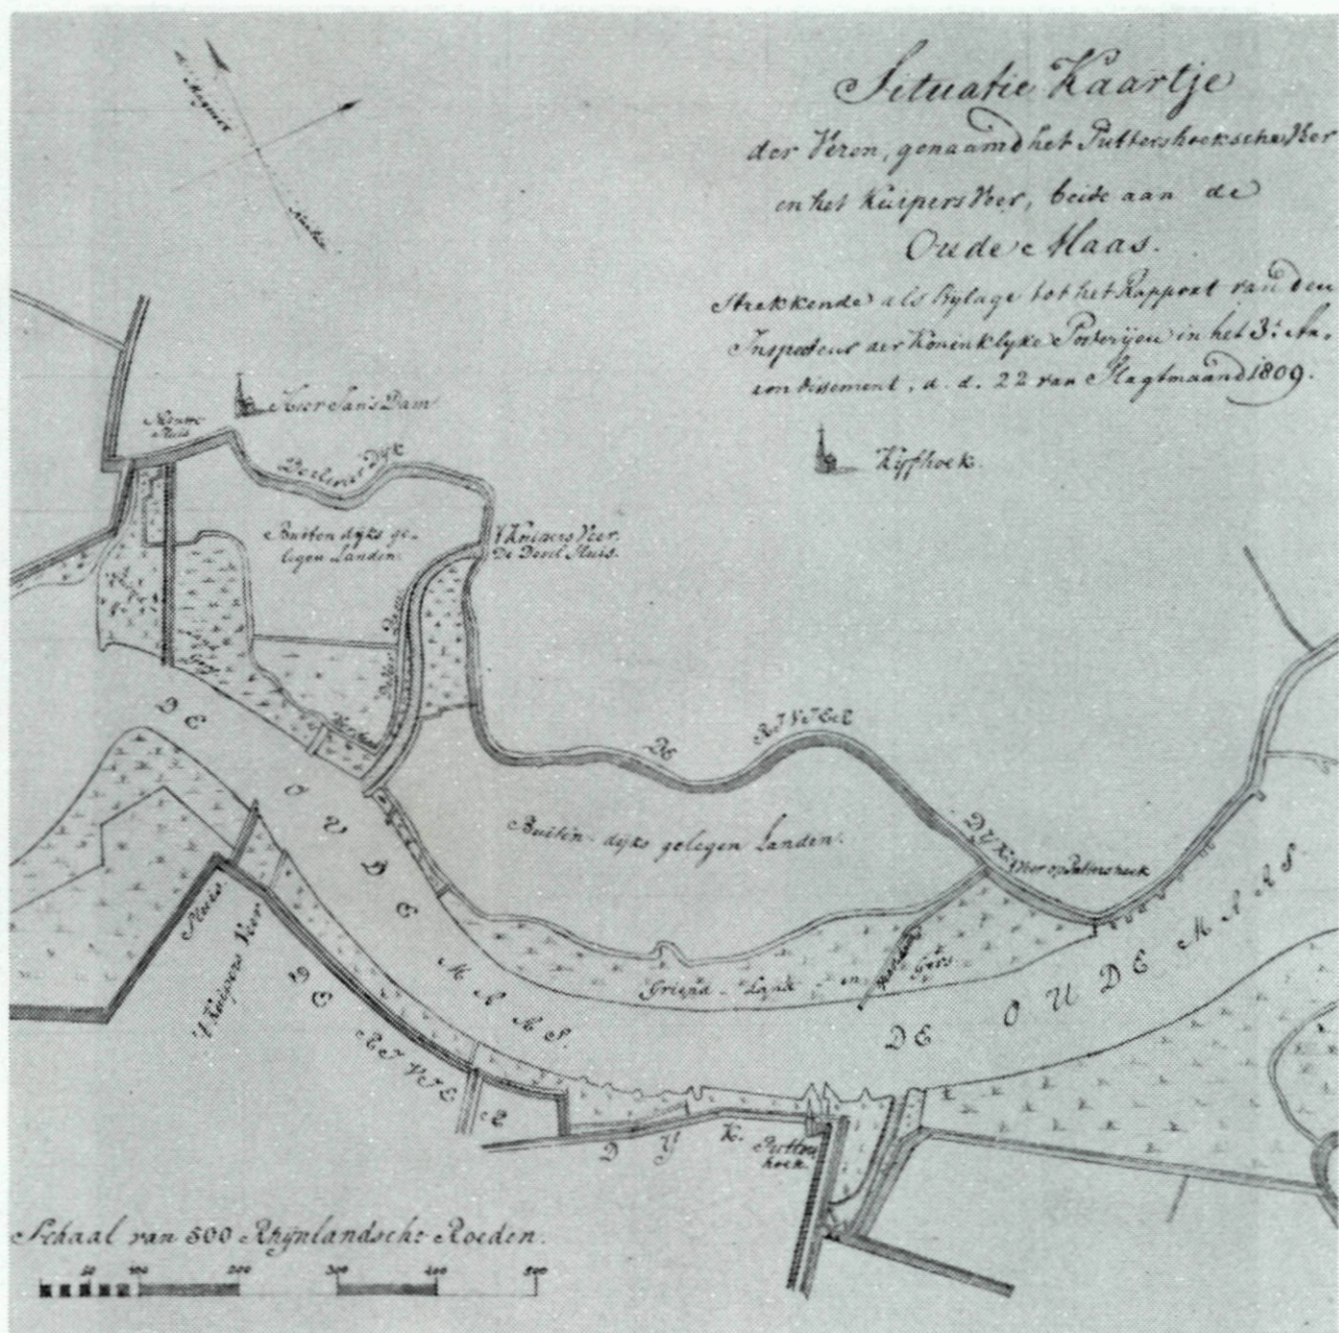 Situatie Kaartje
der Veren, genaamd het Puttershoeksche Veer
en het Kuipers Veer, beide aan de
Oude Maas.
Strekkende als Bylage tot het Rapport van den
Inspecteur der Koninklyke Posteryen in het 3e Ar,
rondissement, d. d. 22 van Slagtmaand 1809.
Magneet
Kyfhoek.
Heer Jan's Dam
Nieuwe
Sluis
Develweer Dyk
Buiten dyks ge-
legen Landen.
't Kuipers Veer.
De Devel Sluis.
DE
OUDE
MAAS.
DE RIVIER
DYK.
Veer op Puttershoek
Buiten-dyks gelegen Landen.
Griend-Land en Gors.
DE OUDE MAAS.
Sluis.
't Kuipers Veer
DE RIVIER
DYK.
Putters
hoek.
Schaal van 500 Rhynlandsche Roeden.
50 100 200 300 400 500